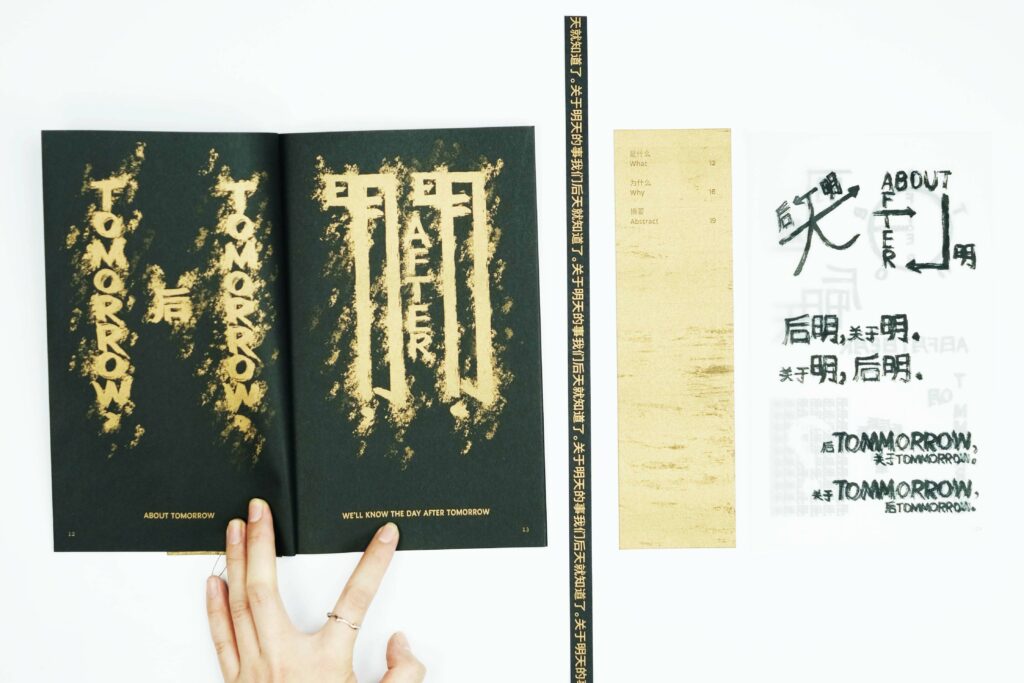 TOMORROW,
后
TOMORROW,
明
AFTER
明
ABOUT TOMORROW
WE'LL KNOW THE DAY AFTER TOMORROW
12
13
天就知道了。关于明天的事我们后天就知道了。关于明天的事我们后天就知道了。关于明天的事我们后天就知道了。关于明天的事
是什么
What 12
为什么
Why 16
摘要
Abstract 19
后天明
ABOUT
AFTER
明
后明,关于明.
关于明,后明.
后TOMMORROW,
关于TOMMORROW.
关于TOMMORROW,
后TOMMORROW.